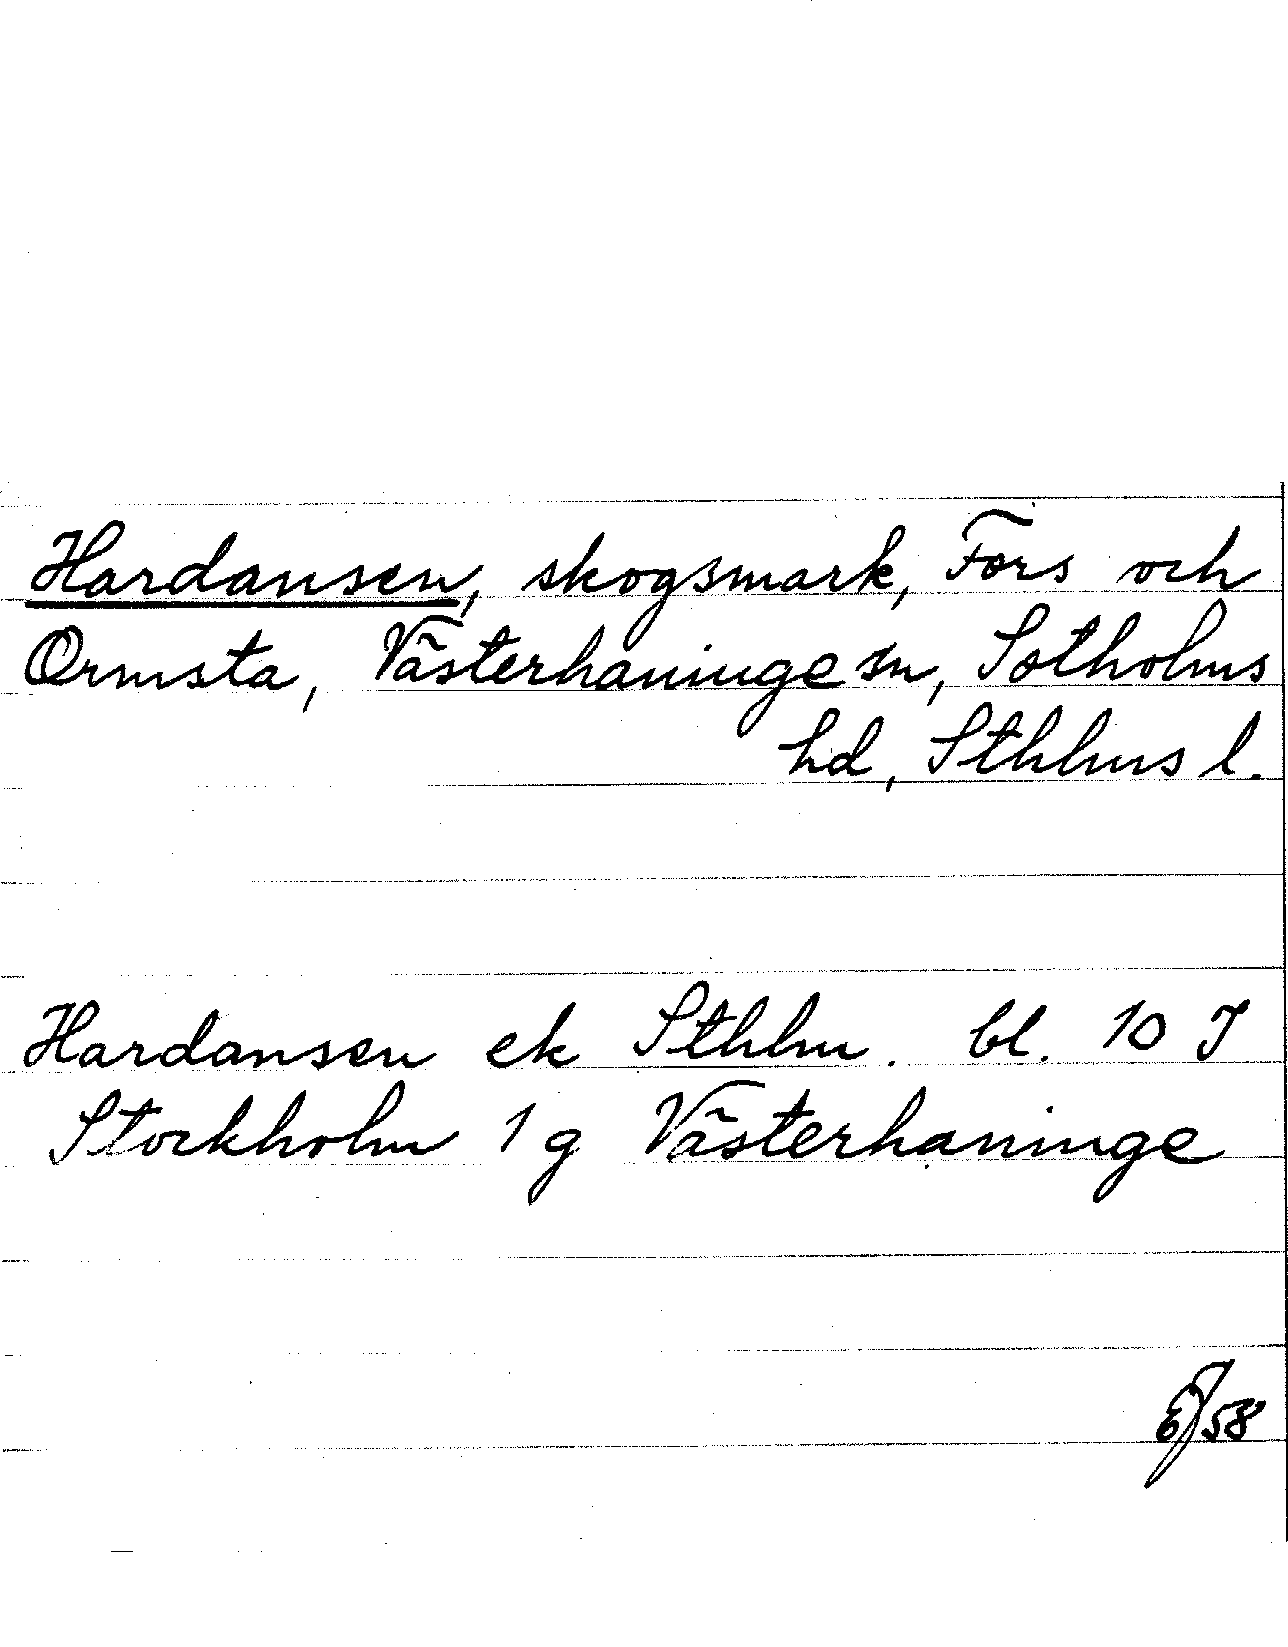 Hardansen, skogsmark, Fors och
Ormsta, Västerhaninge sn, Sotholms
hd, Sthlms l.
Hardansen ek Sthlm. bl. 10 J
Stockholm 1 g Västerhaninge
58